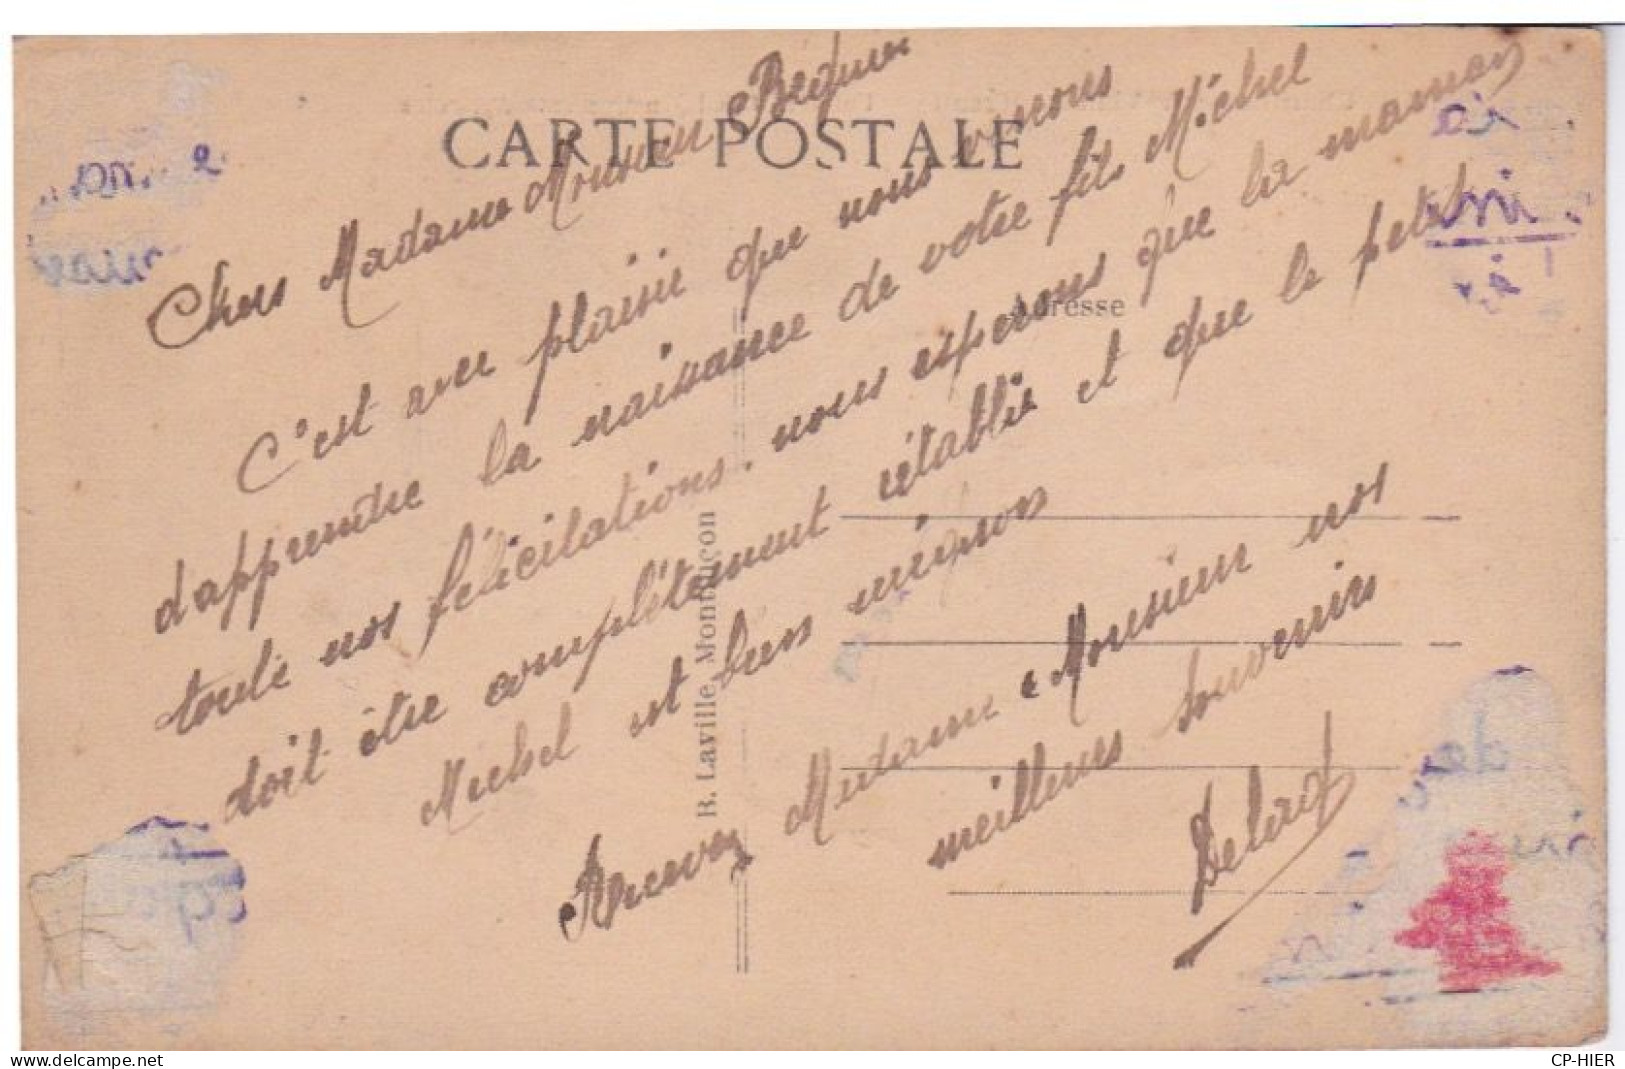 CARTE POSTALE
Chers Madame Monsieur
C'est avec plaisir que nous venons
d'apprendre la naissance de votre fils Michel
toute nos félicitations. nous esperons que la maman
doit être complétement rétablie et que le petit
Michel est bien mignon
Recevez Madame Monsieur nos
meilleurs souvenirs
Adresse
R. Laville Montluçon
www.delcampe.net
CP-HIER